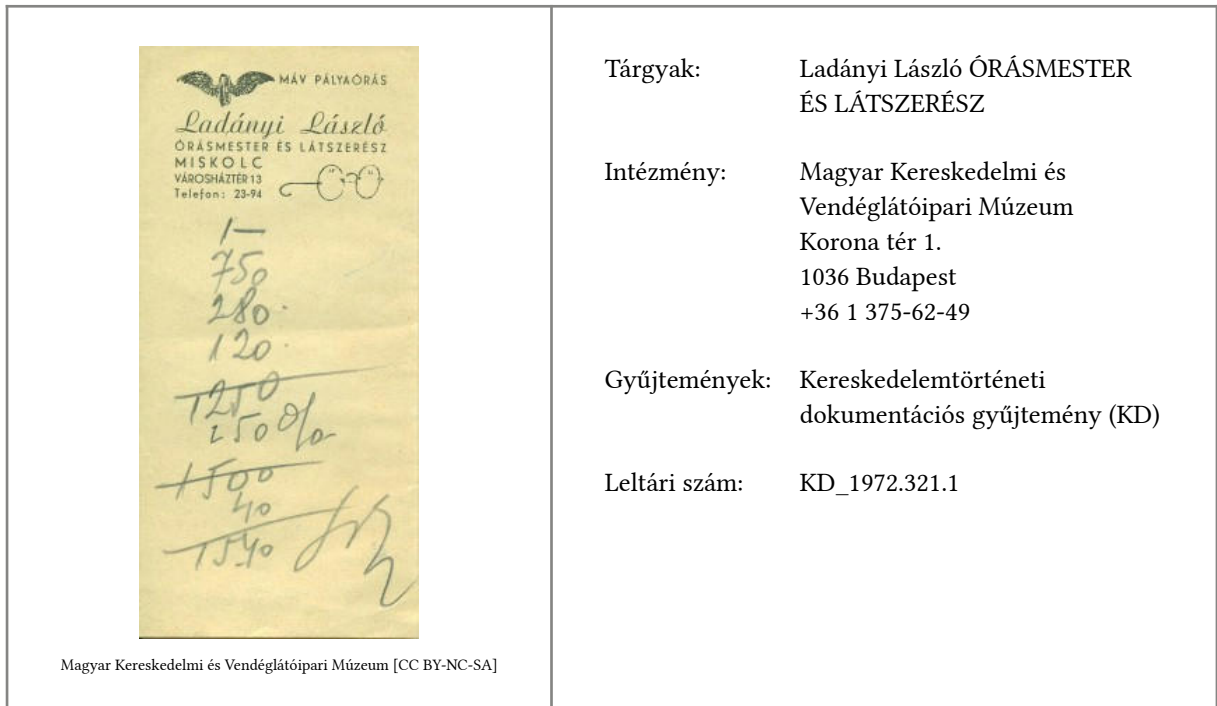 MÁV PÁLYAÓRÁS
Ladányi László
ÓRÁSMESTER ÉS LÁTSZERÉSZ
MISKOLC
VÁROSHÁZTÉR 13
Telefon: 23-94
1—
750
280.
120.
1250
250 %
1500
40
1540
Magyar Kereskedelmi és Vendéglátóipari Múzeum [CC BY-NC-SA]
Tárgyak: Ladányi László ÓRÁSMESTER
ÉS LÁTSZERÉSZ
Intézmény: Magyar Kereskedelmi és
Vendéglátóipari Múzeum
Korona tér 1.
1036 Budapest
+36 1 375-62-49
Gyűjtemények: Kereskedelemtörténeti
dokumentációs gyűjtemény (KD)
Leltári szám: KD_1972.321.1